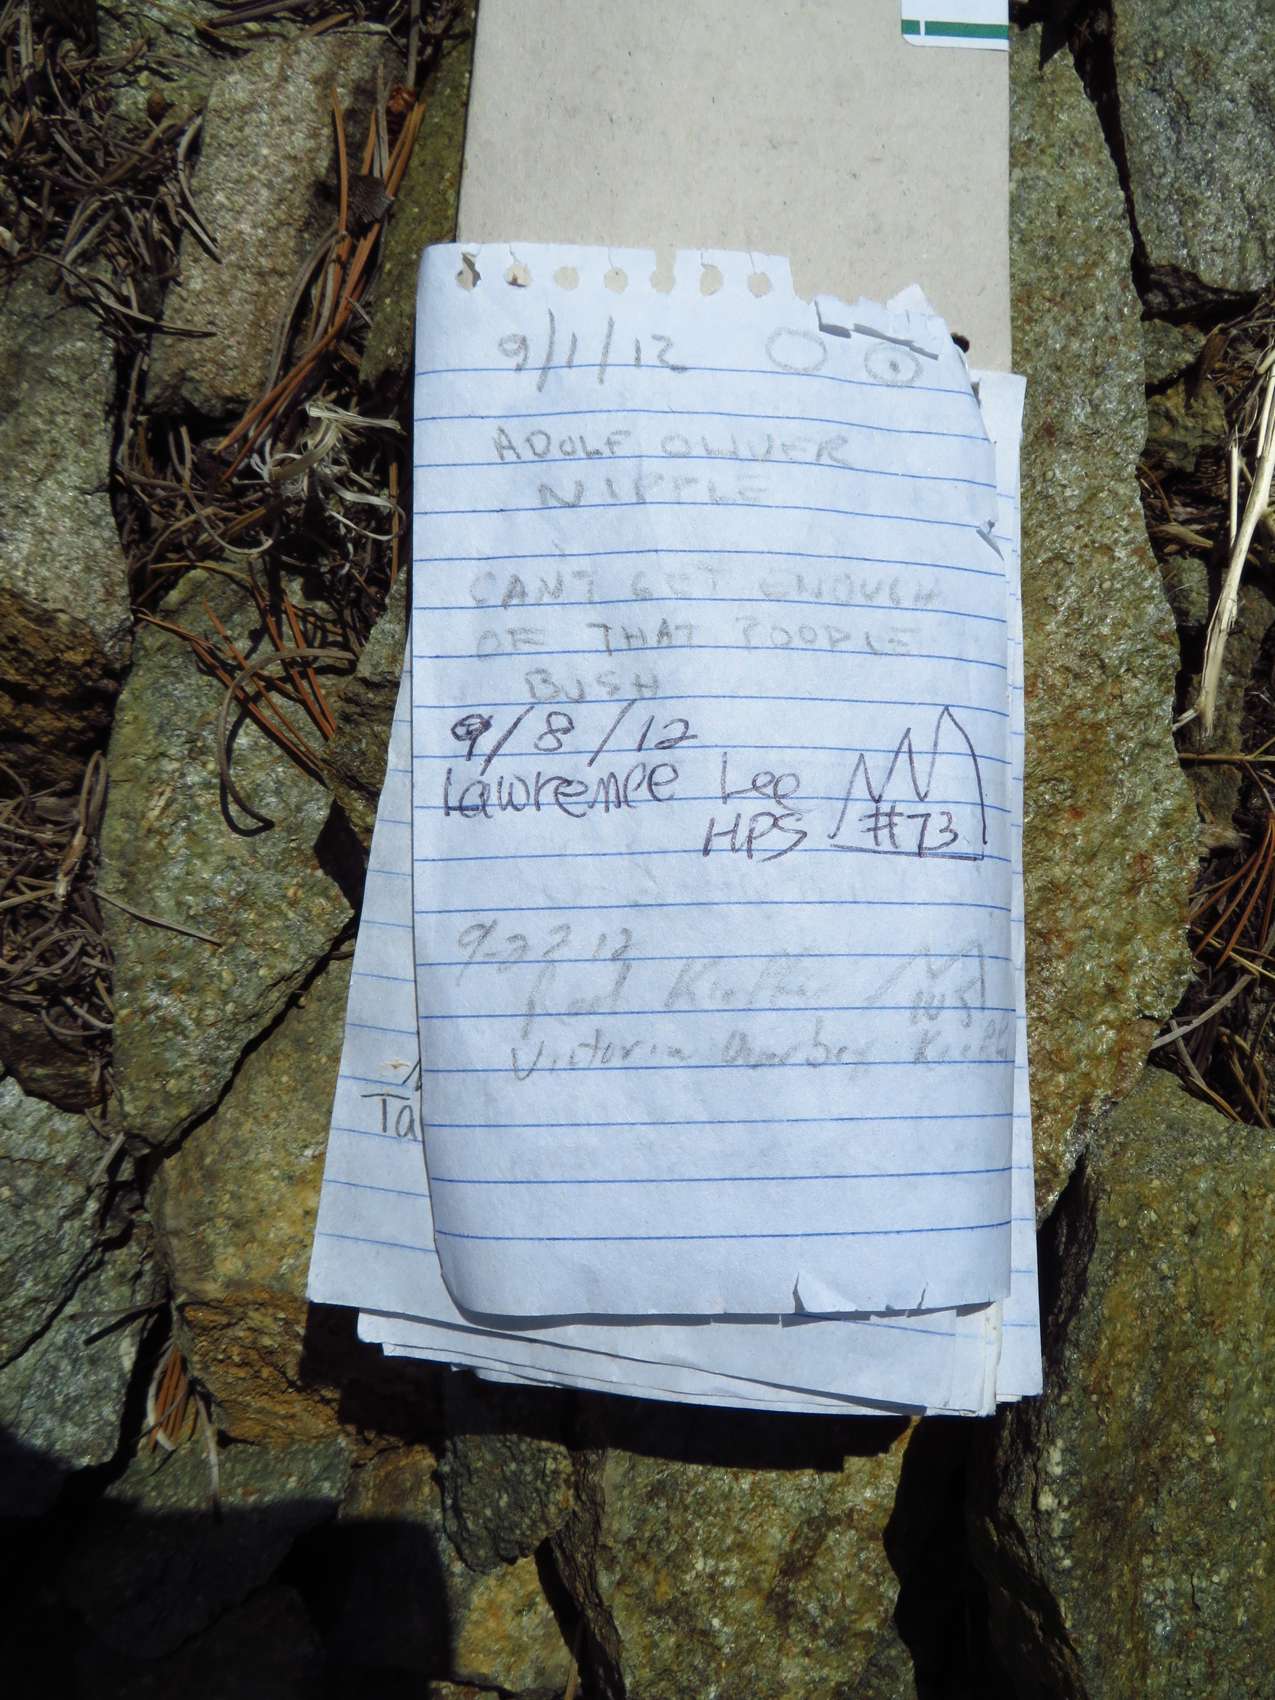 9/1/12
ADOLF OLIVER
NIPPLE
CAN'T GET ENOUGH
OF THAT POODLE
BUSH
9/8/12
Lawrence Lee
HPS #73
9-22 12
Victoria
Ta